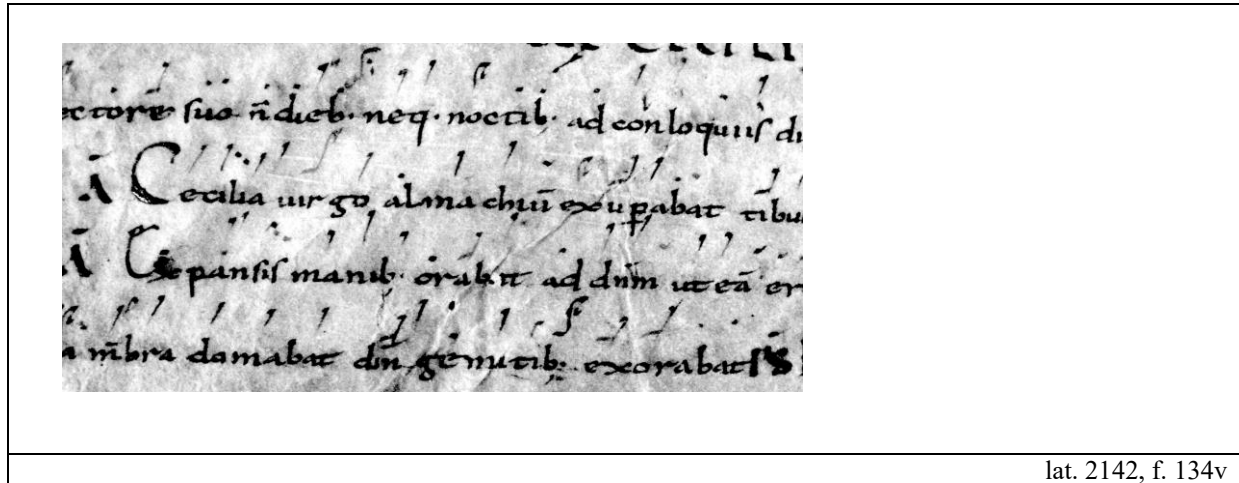 ectore suo n̄ dieb· neq· noctib· ad conloquiis di
Ā Cecilia uirgo almachiū exup̱abat tibu
Ā Expansis manib· orabat ad dn̄m ut eā er
a m̄bra domabat dn̄ gemitib; exorabat
lat. 2142, f. 134v